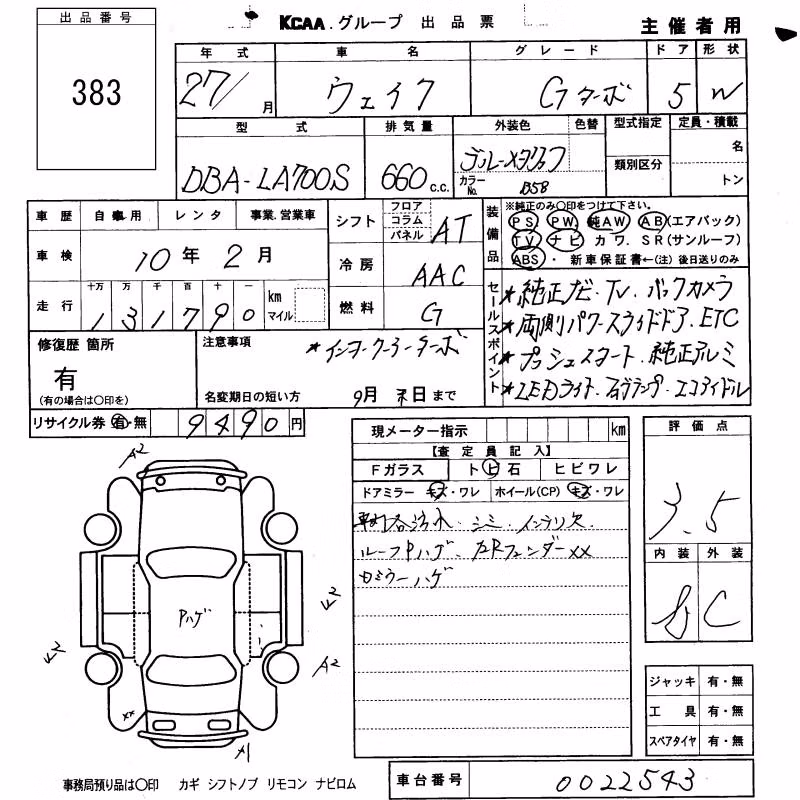 出品番号
383
KCAA.グループ 出品票
主催者用
年式 車名 グレード ドア 形状
27/ 月 ウェイク Gターボ 5 W
型式 排気量 外装色 色替 型式指定 定員・積載
DBA-LA700S 660 c.c. ブルーメタリック カラーNo. B58 類別区分 名 トン
車歴 自家用 レンタ 事業.営業車
車検 10年 2月
走行 十万 万 千 百 十 一 km マイル
131790
シフト フロア コラム パネル AT
冷房 AAC
燃料 G
装備品 ※純正のみ○印をつけて下さい。
PS PW 純AW AB(エアバック)
TV ナビ カワ.SR(サンルーフ)
ABS ・ 新車保証書←(注)後日送りのみ
セールスポイント
★純正ナビ・TV・バックカメラ
★両側パワースライドドア.ETC
★プッシュスタート・純正アルミ
★LEDライト・フォグランプ・エコアイドル
修復歴 箇所
有
(有の場合は○印を)
注意事項
★インタークーラーターボ
名変期日の短い方 9月 末日まで
リサイクル券 有・無 9490円
現メーター指示 km
【査定員記入】
Fガラス トビ石 ヒビワレ
ドアミラー キズ・ワレ ホイール(CP) キズ・ワレ
車内汚れ・シミ・インテリ欠
ルーフPハゲ、左Rフェンダー××
ミラーハゲ
評価点
3.5
内装 外装
C
ジャッキ 有・無
工具 有・無
スペアタイヤ 有・無
A2
Pハゲ
A2
××
事務局預り品は○印 カギ シフトノブ リモコン ナビロム
車台番号 0022543